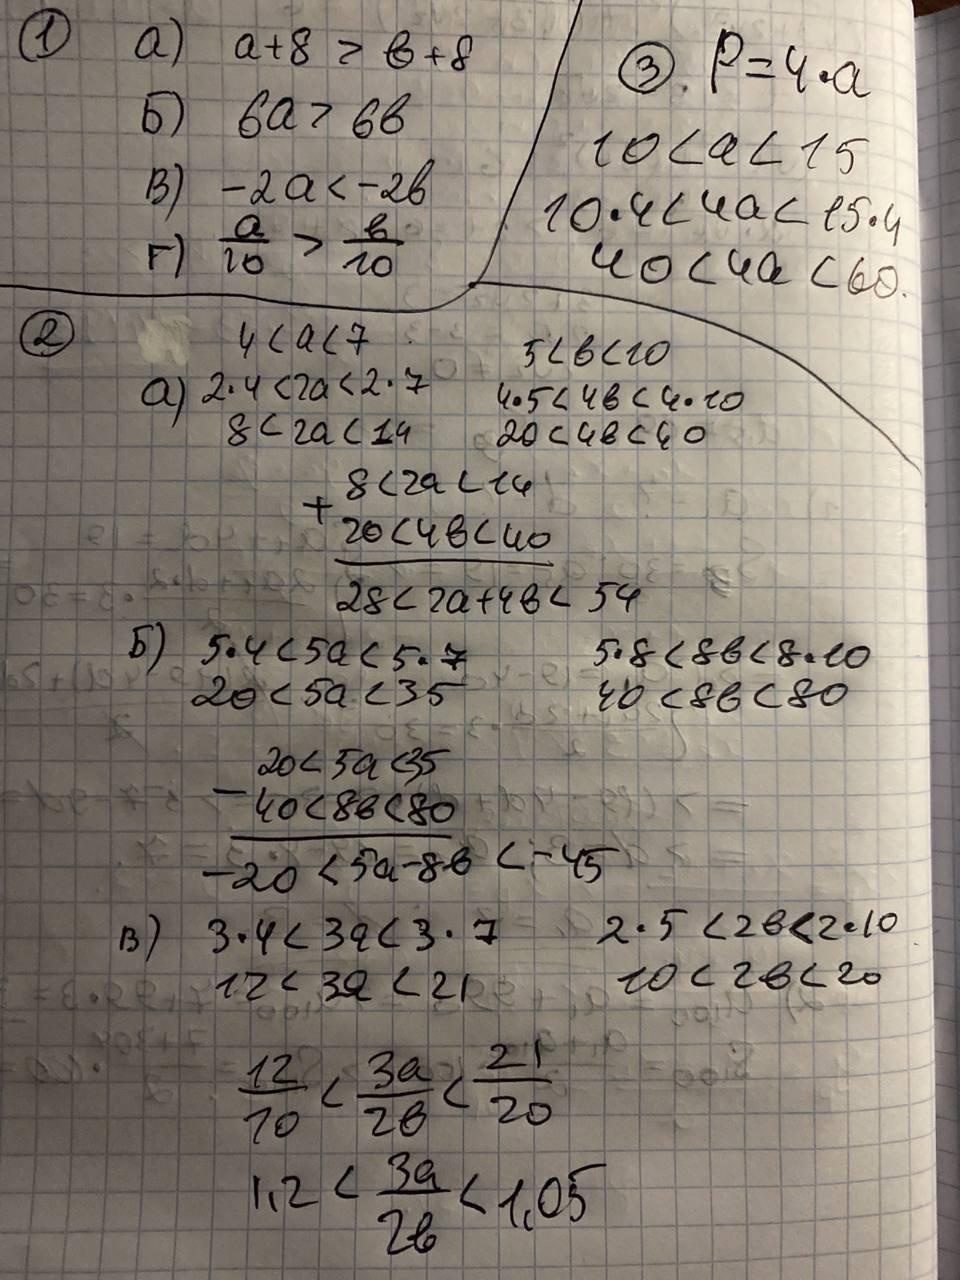 ① а) a+8 > в+8
Б) 6a > 6в
В) -2a < -2в
г) a/10 > в/10
③. P=4·a
10<a<15
10·4<4a<15·4
40<4a<60.
② 4<a<7 5<в<10
а) 2·4<2a<2·7 4·5<4в<4·10
8<2a<14 20<4в<40
8<2a<14
+
20<4в<40
28<2a+4в<54
Б) 5·4<5a<5·7 5·8<8в<8·10
20<5a<35 40<8в<80
20<5a<35
-
40<8в<80
-20<5a-8в<-45
в) 3·4<3a<3·7 2·5<2в<2·10
12<3a<21 10<2в<20
12/10 < 3a/2в < 21/20
1,2 < 3a/2в < 1,05